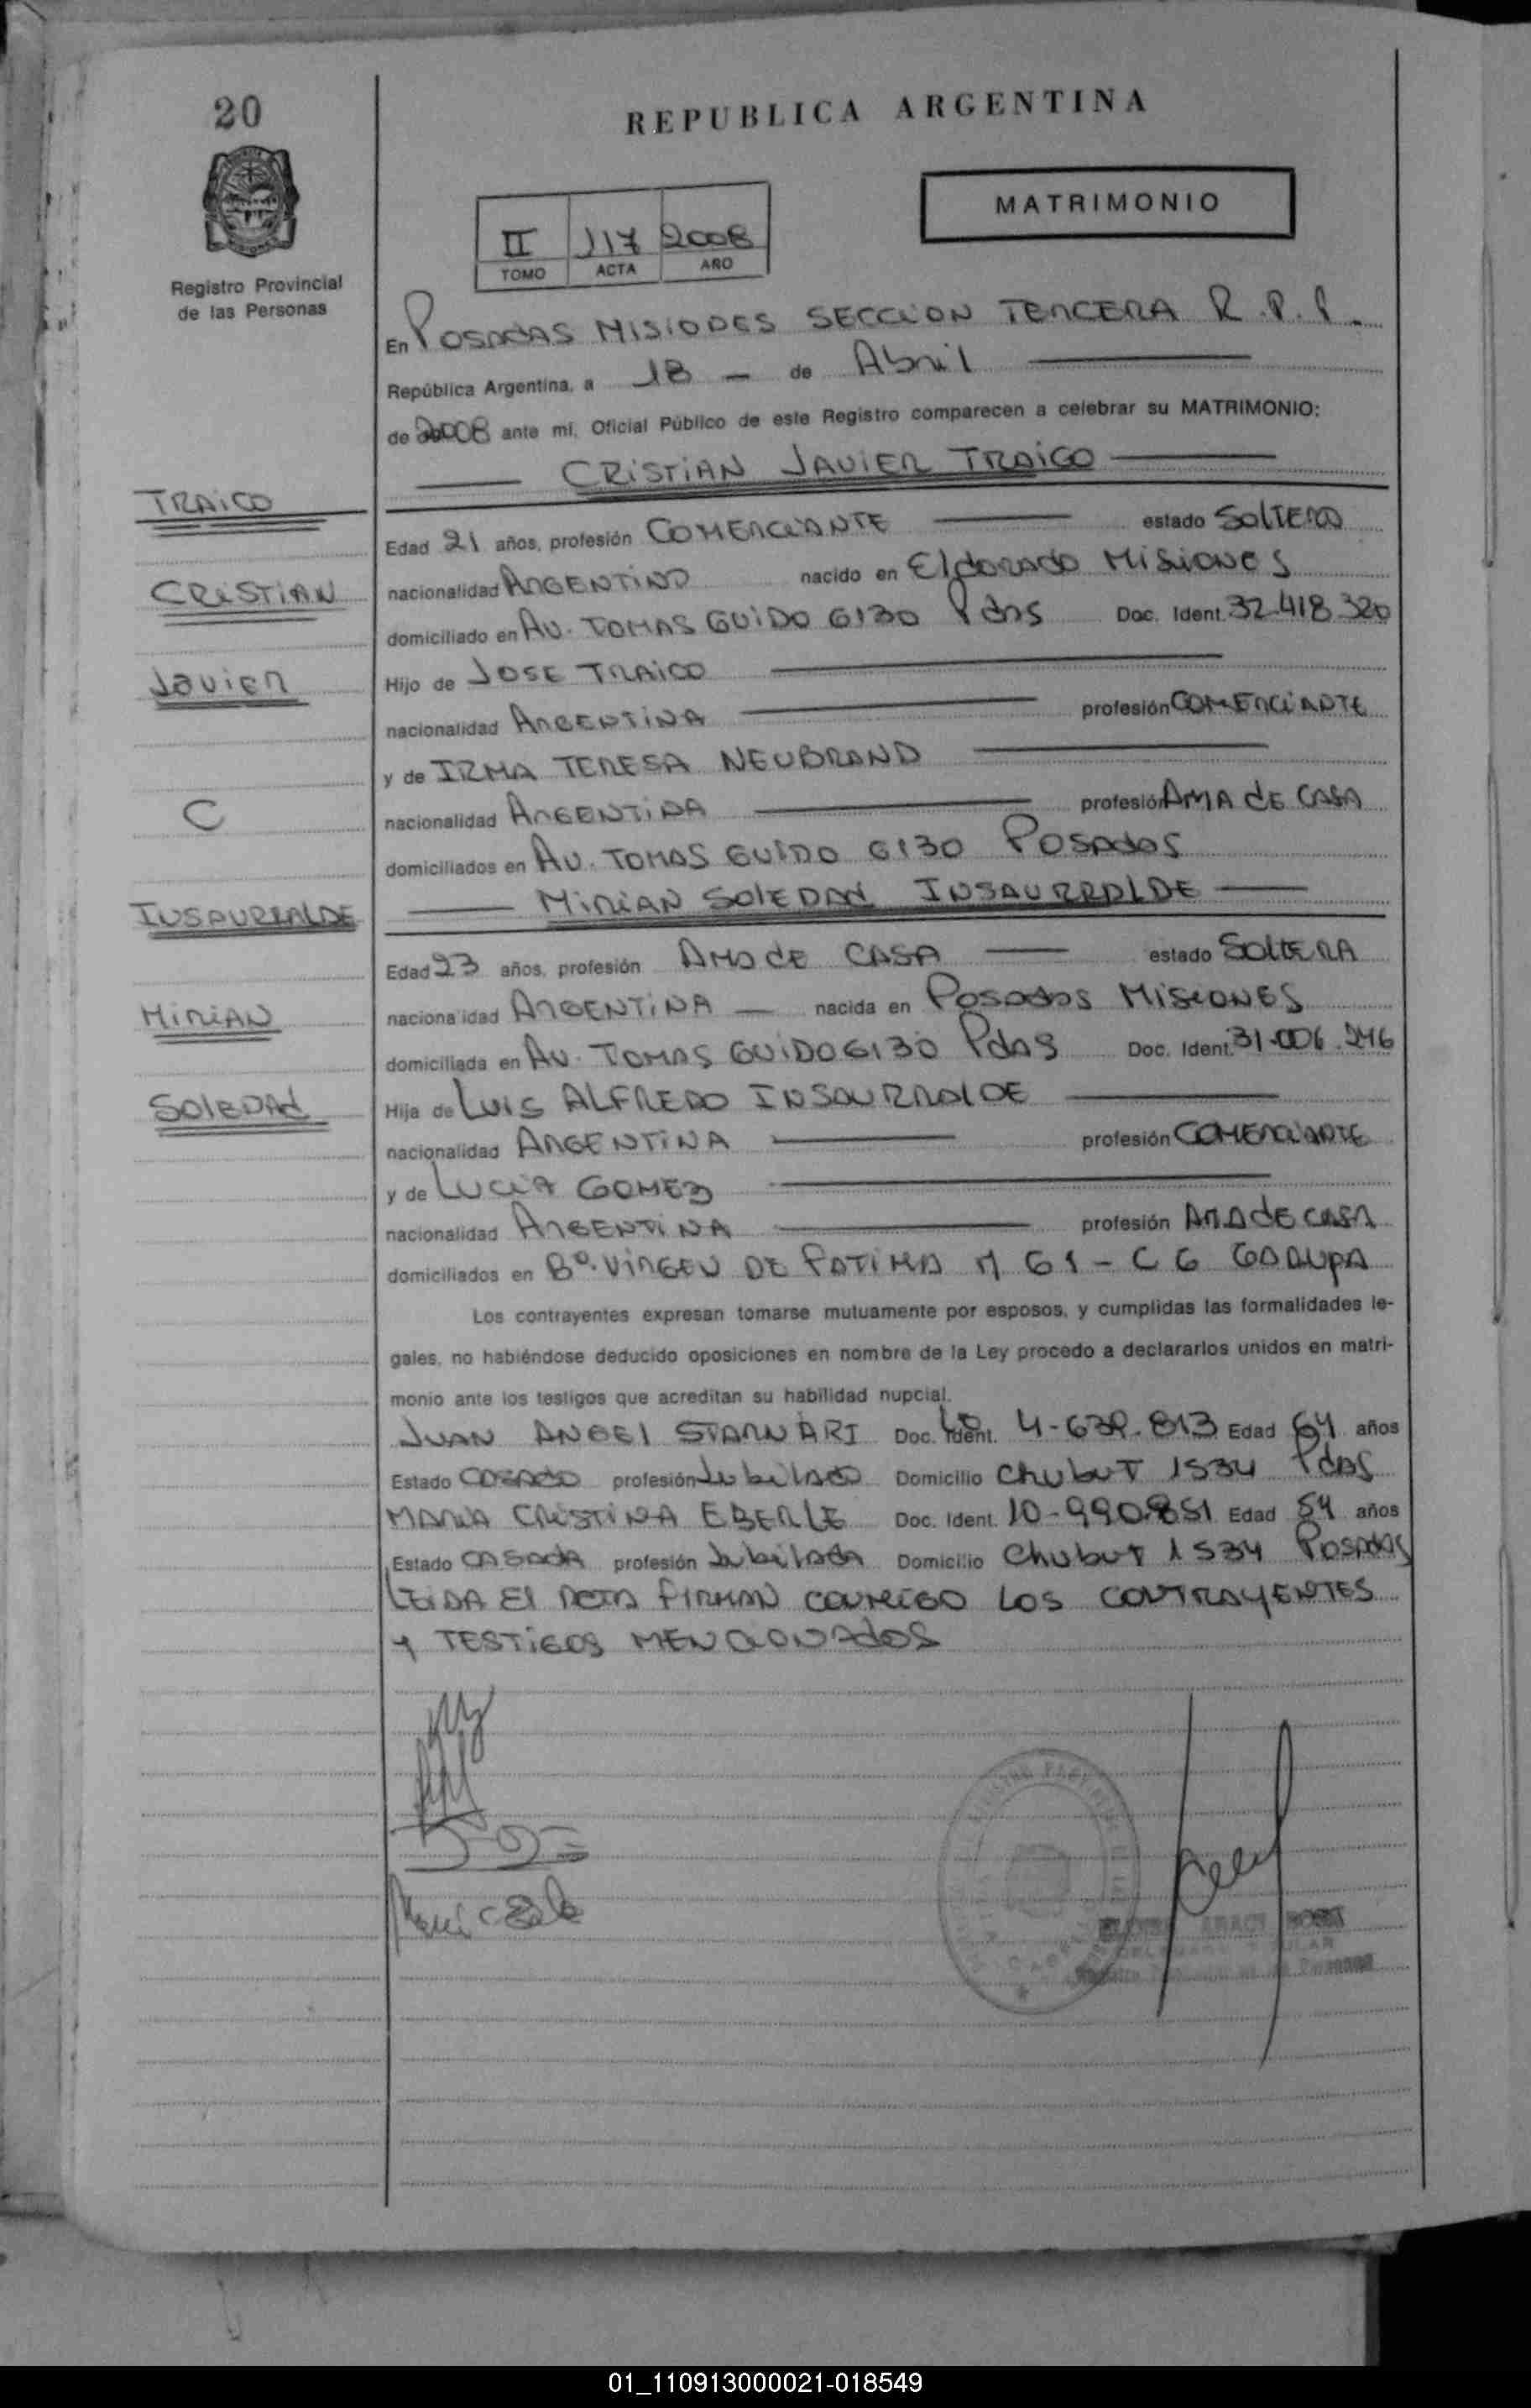 20
REPUBLICA ARGENTINA
MATRIMONIO
II 117 2008
TOMO ACTA AÑO
Registro Provincial
de las Personas
En POSADAS MISIONES SECCION TERCERA R.P.P.
República Argentina, a 18 - de Abril
de 2008 ante mí, Oficial Público de este Registro comparecen a celebrar su MATRIMONIO:
CRISTIAN JAVIER TRAICO
TRAICO
Edad 21 años, profesión COMERCIANTE estado SOLTERO
CRISTIAN
nacionalidad ARGENTINO nacido en Eldorado MISIONES
domiciliado en AV. TOMAS GUIDO 6130 Pdas Doc. Ident. 32.418.320
Javier
Hijo de JOSE TRAICO
nacionalidad ARGENTINA profesión COMERCIANTE
y de IRMA TERESA NEUBRAND
C
nacionalidad ARGENTINA profesión AMA dE CASA
domiciliados en AV. TOMAS GUIDO 6130 POSADAS
MIRIAN SOlEDAd INSAURRALDE
INSAURRALDE
Edad 23 años, profesión AMA dE CASA estado SOLTERA
MIRIAN
nacionalidad ARGENTINA - nacida en POSADAS MISIONES
domiciliada en AV. TOMAS GUIDO 6130 PdAS Doc. Ident. 31.006.246
SOlEDAd
Hija de LUIS ALFREDO INSAURRALDE
nacionalidad ARGENTINA profesión COMERCIANTE
y de LUCIA GOMEZ
nacionalidad ARGENTINA profesión AMA dE CASA
domiciliados en Bº. VIRGEN DE FATIMA M 61 - C 6 GARUPA
Los contrayentes expresan tomarse mutuamente por esposos, y cumplidas las formalidades le-
gales, no habiéndose deducido oposiciones en nombre de la Ley procedo a declararlos unidos en matri-
monio ante los testigos que acreditan su habilidad nupcial.
JUAN ANGEl STARNARI Doc. Ident. LE 4-639.813 Edad 64 años
Estado CASADO profesión Jubilado Domicilio Chubut 1534 PdAS
MARIA CRISTINA EBERLE Doc. Ident. 10-990.851 Edad 54 años
Estado CASADA profesión Jubilada Domicilio Chubut 1534 POSADAS
LEIDA El ACTA FIRMAN CONMIGO LOS CONTRAYENTES
Y TESTIGOS MENCIONADOS
01_110913000021-018549